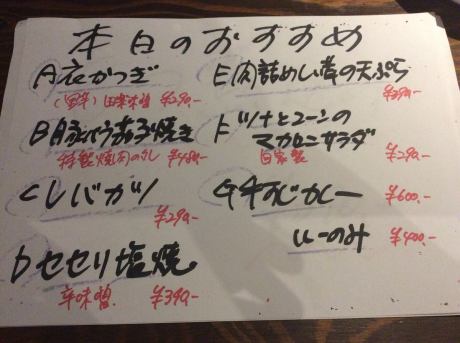 本日のおすすめ
A 衣かつぎ
田楽味噌 ¥290-
B 焼き
特製焼肉のタレ ¥480-
C レバカツ
¥290-
D セセリ塩焼
辛味噌 ¥390-
E 肉詰めしい茸の天ぷら
¥390-
F ツナとコーンの
マカロニサラダ
自家製 ¥290-
G 牛すじカレー ¥600-
ルーのみ ¥400-